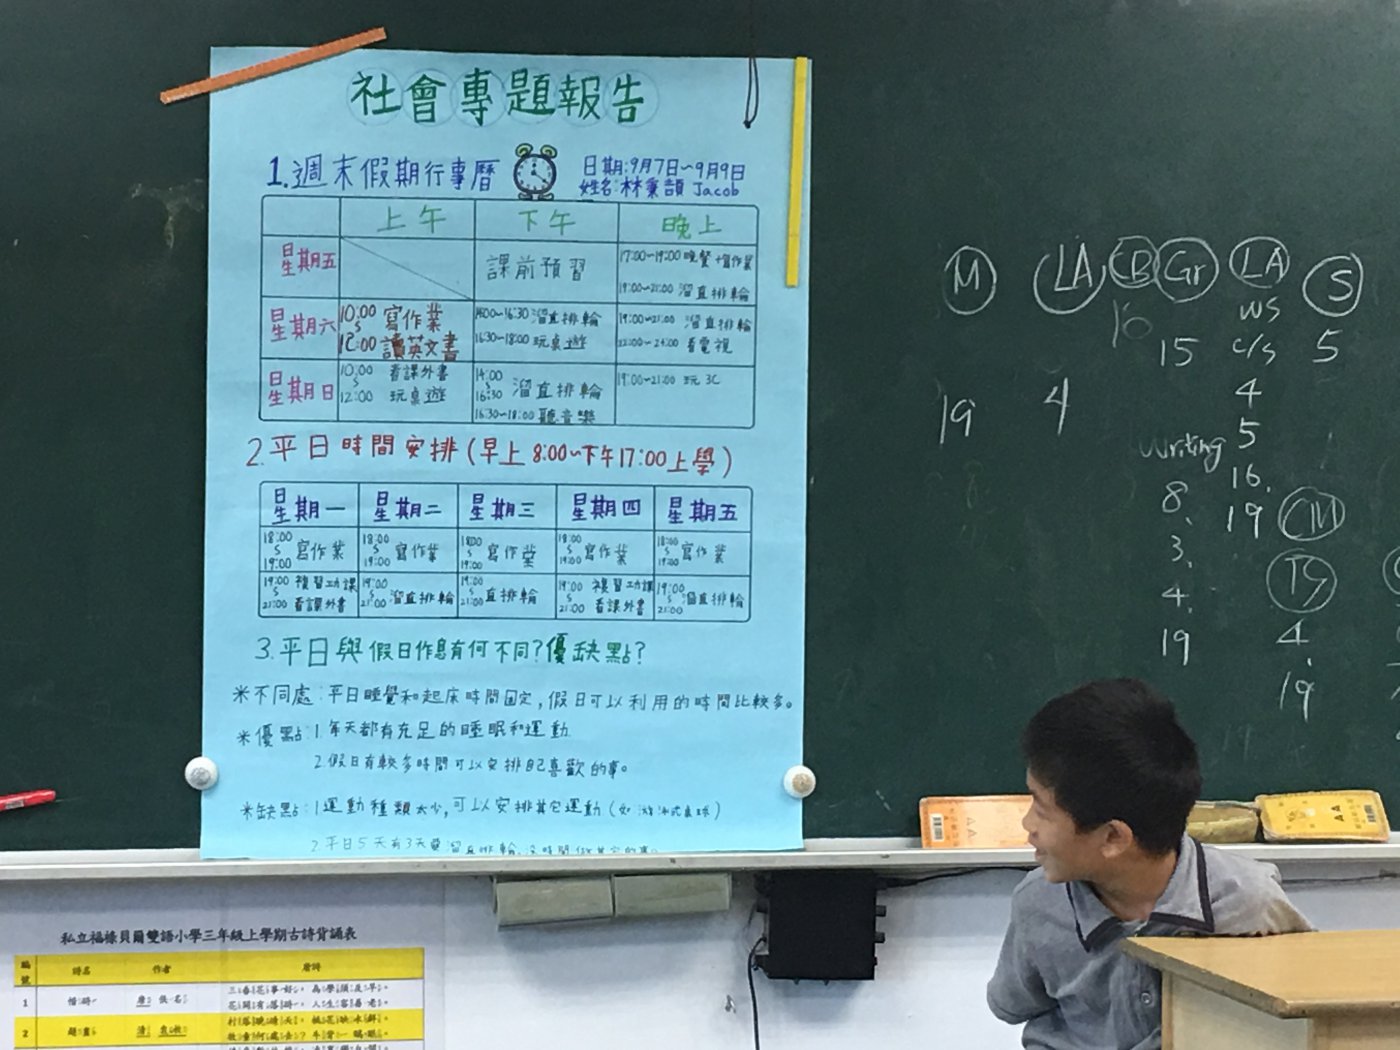 社會專題報告
1.週末假期行事曆
日期:9月7日~9月9日
姓名:林秉頡 Jacob
上午 下午 晚上
星期五 課前預習 17:00~19:00 晚餐、寫作業
19:00~21:00 溜直排輪
星期六 10:00 寫作業 14:00~16:30 溜直排輪 19:00~21:00 溜直排輪
12:00 讀英文書 16:30~18:00 玩桌遊 22:00~24:00 看電視
星期日 10:00 看課外書 14:00 19:00~21:00 玩3C
12:00 玩桌遊 16:30 溜直排輪
16:30~18:00 聽音樂
2.平日時間安排(早上8:00~下午17:00上學)
星期一 星期二 星期三 星期四 星期五
18:00 18:00 18:00 18:00 18:00
19:00 寫作業 19:00 寫作業 19:00 寫作業 19:00 寫作業 19:00 寫作業
19:00 複習功課 19:00 19:00 19:00 複習功課 19:00
21:00 看課外書 21:00 溜直排輪 21:00 直排輪 21:00 看課外書 21:00 溜直排輪
3.平日與假日作息有何不同?優缺點?
*不同處:平日睡覺和起床時間固定,假日可以利用的時間比較多。
*優點:1.每天都有充足的睡眠和運動
2.假日有較多時間可以安排自己喜歡的事。
*缺點:1.運動種類太少,可以安排其它運動(如游泳或桌球)
2.平日5天有3天要溜直排輪,沒時間做其它的事。
M LA CB Gr LA S
10 15 WS 5
c/s
19 4 4
Writing 5
8. 16.
3. 19
4.
19
CM
TS
4.
19
私立福祿貝爾雙語小學三年級上學期古詩背誦表
編號 詩名 作者 唐詩
1 惜時 唐 佚名 三春花事好,為學須及早。
花開有落時,人生容易老。
2 清 袁枚 村落晚晴天,桃花映水鮮。
牧童何處去?牛背一鷗眠。